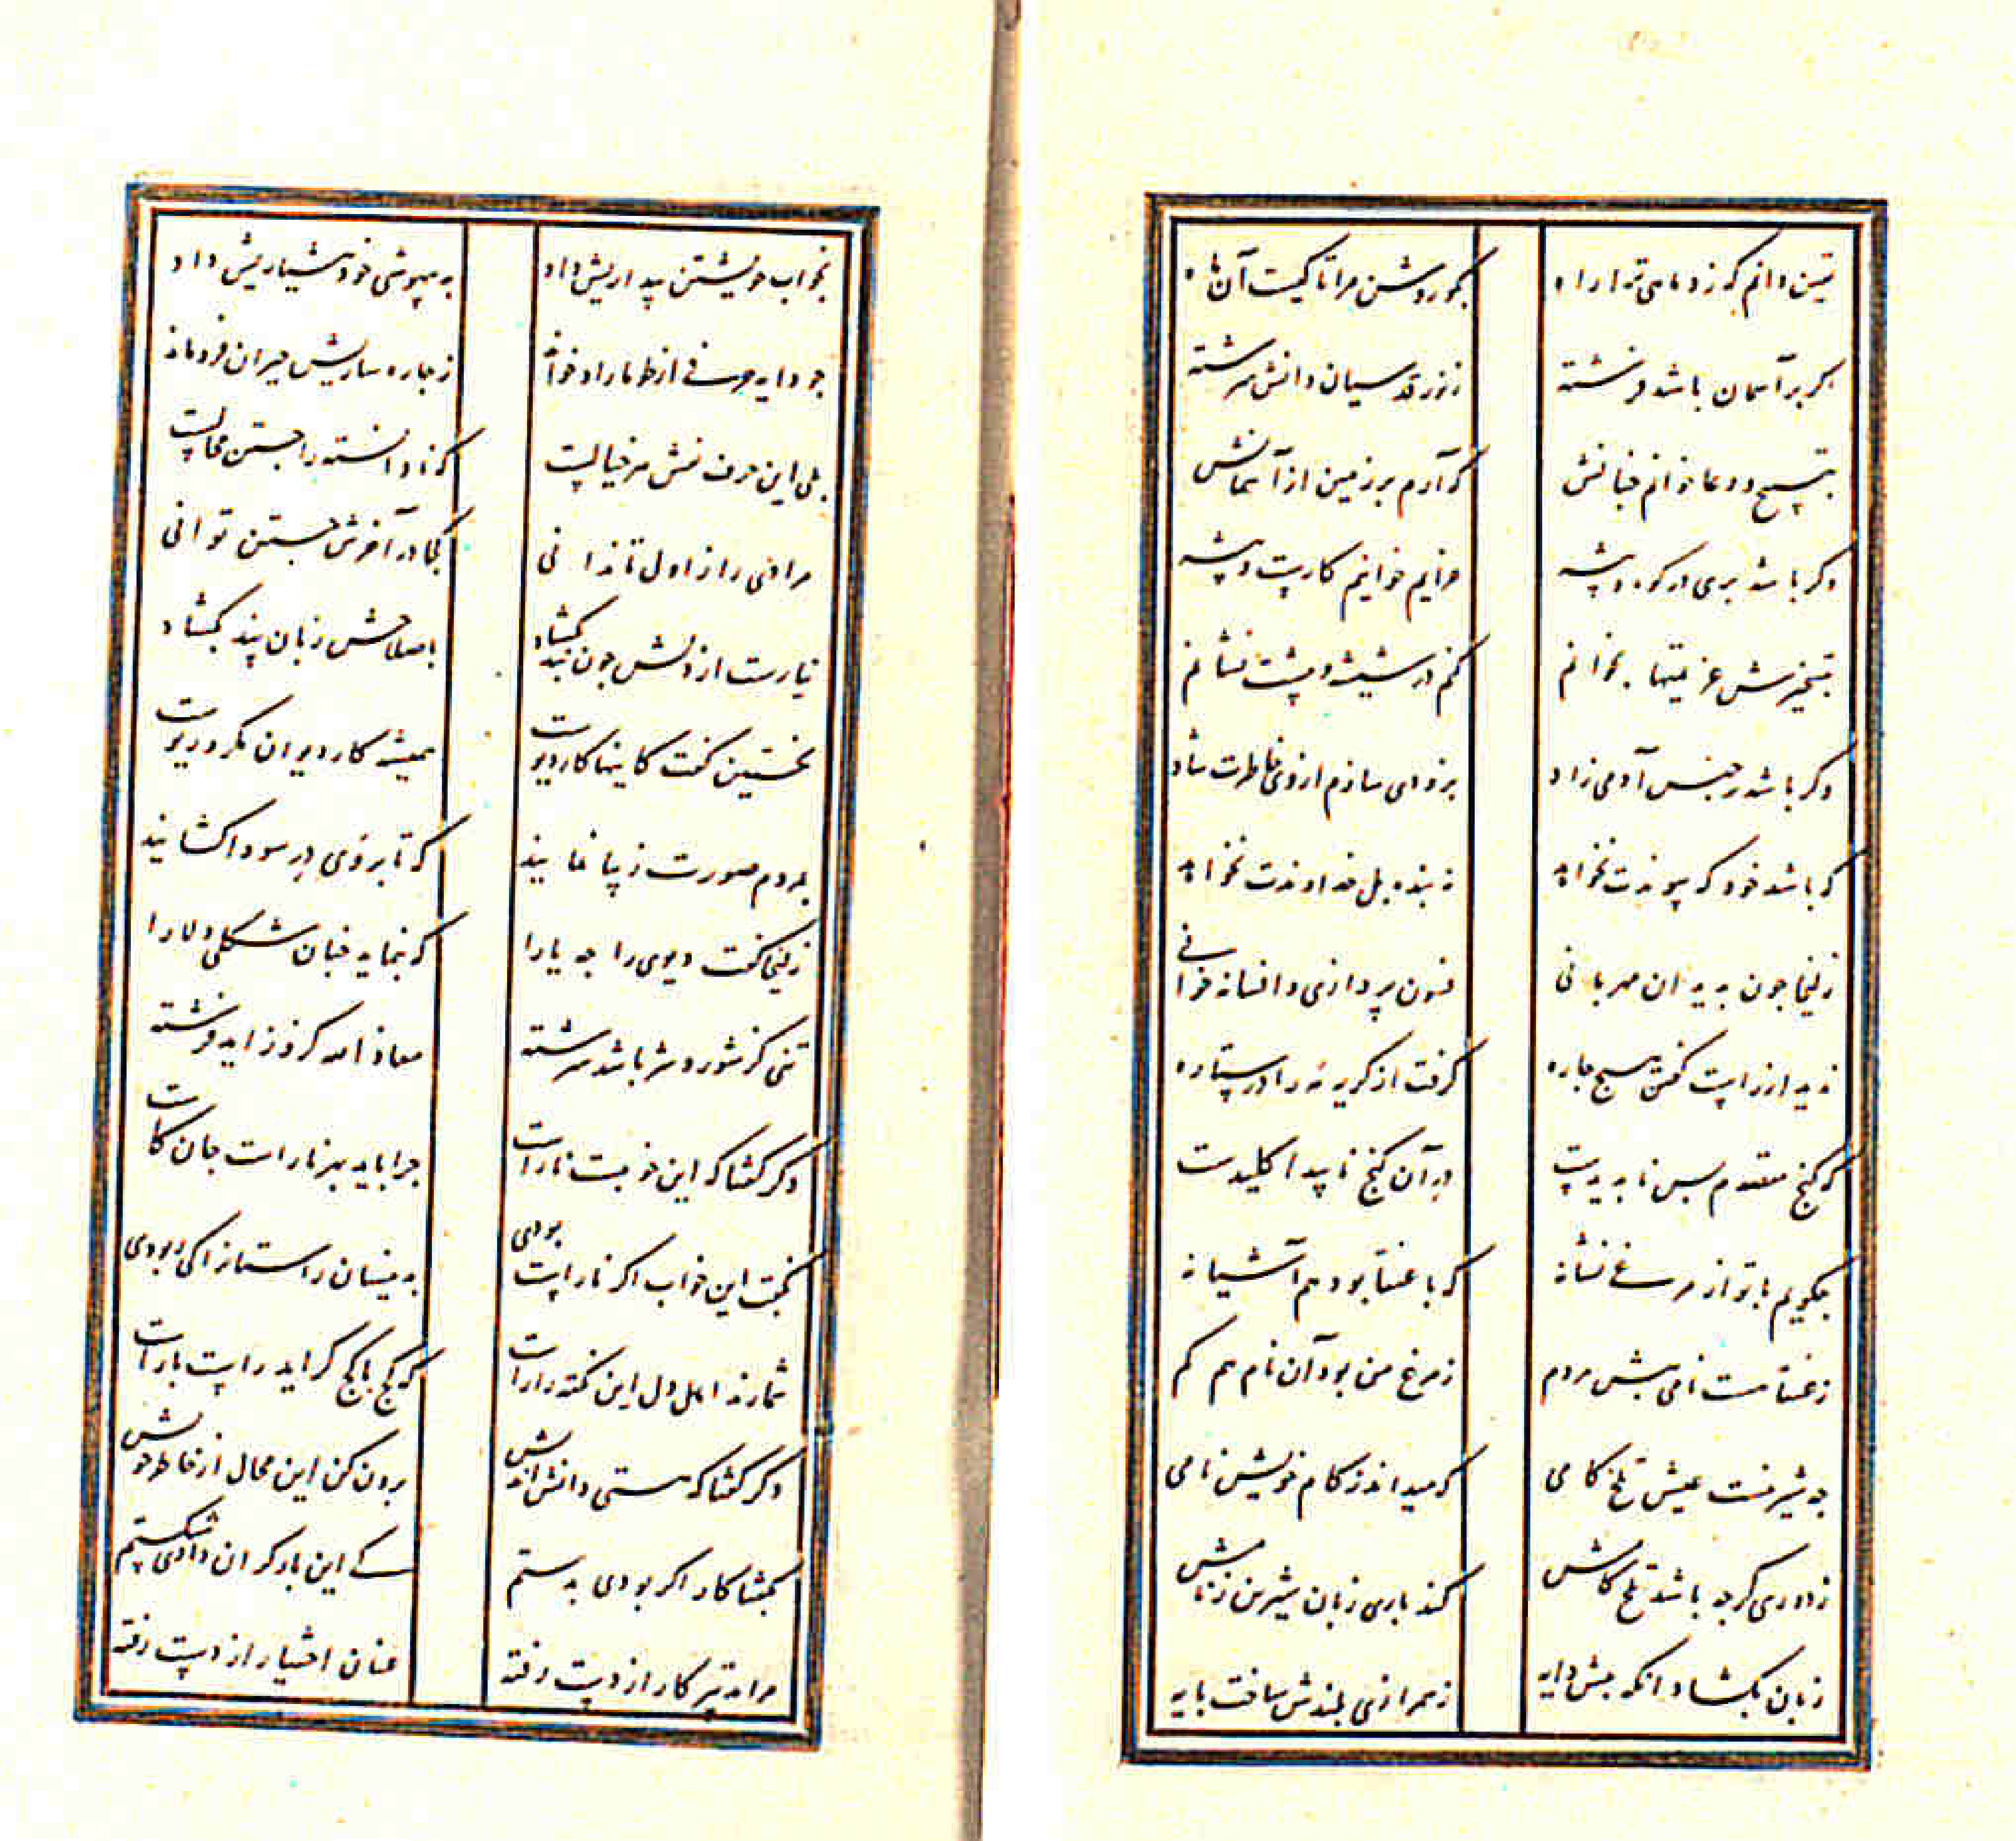 یقین دانم که زد ماهی ترا راه بکو روشن مرا تا کیست آن ماه
اکر بر آسمان باشد فرشته ز نور قدسیان دانش سرشته
بتسبیح و دعا خوانم چنانش که آرم بر زمین از آسمانش
وکر باشد پری در کوه و بیشه عزایم خوانیم کارست و پیشه
بتسخیرش عزیمتها بخوانم کنم در شیشه و پیشت نشانم
وکر باشد ز جنس آدمی زاد بزودی سازم از وی خاطرت شاد
که باشد خود که پیوندت نخواهد نه بنده بل خداوندت نخواهد
زلیخا چون بدید آن مهربانی فسون پردازی و افسانه خوانی
ندید از راست کفتن هیچ چاره کرفت از کریه مه را در ستاره
که کنج مقصدم بس ناپدیدست در آن کنج ناپیدا کلیدست
چکویم با تو از مرغی نشانه که با عنقا بود هم آشیانه
ز عنقا هست نامی پیش مردم ز مرغ من بود آن نام هم کم
چه شیرینست عیش تلخ کامی که میداند ز کام خویش نامی
ز دوری کرچه باشد تلخ کامش کند باری زبان شیرین ز نامش
زبان بکشاد آنکه پیش دایه ز همرازی بلندش ساخت پایه
بخواب خویشتن بیداریش داد به بیهوشی خود هشیاریش داد
چو دایه حرفی از طومار او خواند ز چاره سازیش حیران فرو ماند
بلی این حرف نقش هر خیالست که نادانسته را جستن محالست
مرادی را ز اول تا ندانی کجا در آخرش جستن توانی
نیارست از دلش چون بند بکشاد باصلاحش زبان پند بکشاد
نخستین کفت کاینها کار دیوست همیشه کار دیوان مکر و ریوست
بمردم صورت زیبا نمایند که تا بر وی در سودا کشایند
زلیخا کفت دیوی را چه یارا که بنماید چنان شکلی دلارا
تنی کز شور و شر باشد سرشته معاذ الله کزو زاید فرشته
دکر کفتا که این خوابیست ناراست چرا باید بهر ناراست جان کاست
بکفت این خواب اکر ناراست بودی بدینسان راستان را کی ربودی
شمارند اهل دل این نکته را راست که کج با کج کراید راست با راست
دکر کفتا که هستی دانش اندیش برون کن این محال از خاطر خویش
بکفتا کار اکر بودی بدستم کی این بار کران دادی شکستم
مرا تدبیر کار از دست رفته عنان اختیار از دست رفته